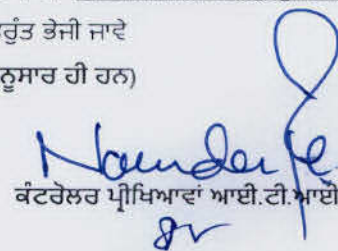 ਰੁੰਤ ਭੇਜੀ ਜਾਵੇ
ਨੂਸਾਰ ਹੀ ਹਨ)
ਕੰਟਰੋਲਰ ਪ੍ਰੀਖਿਆਵਾਂ ਆਈ.ਟੀ.ਆਈ